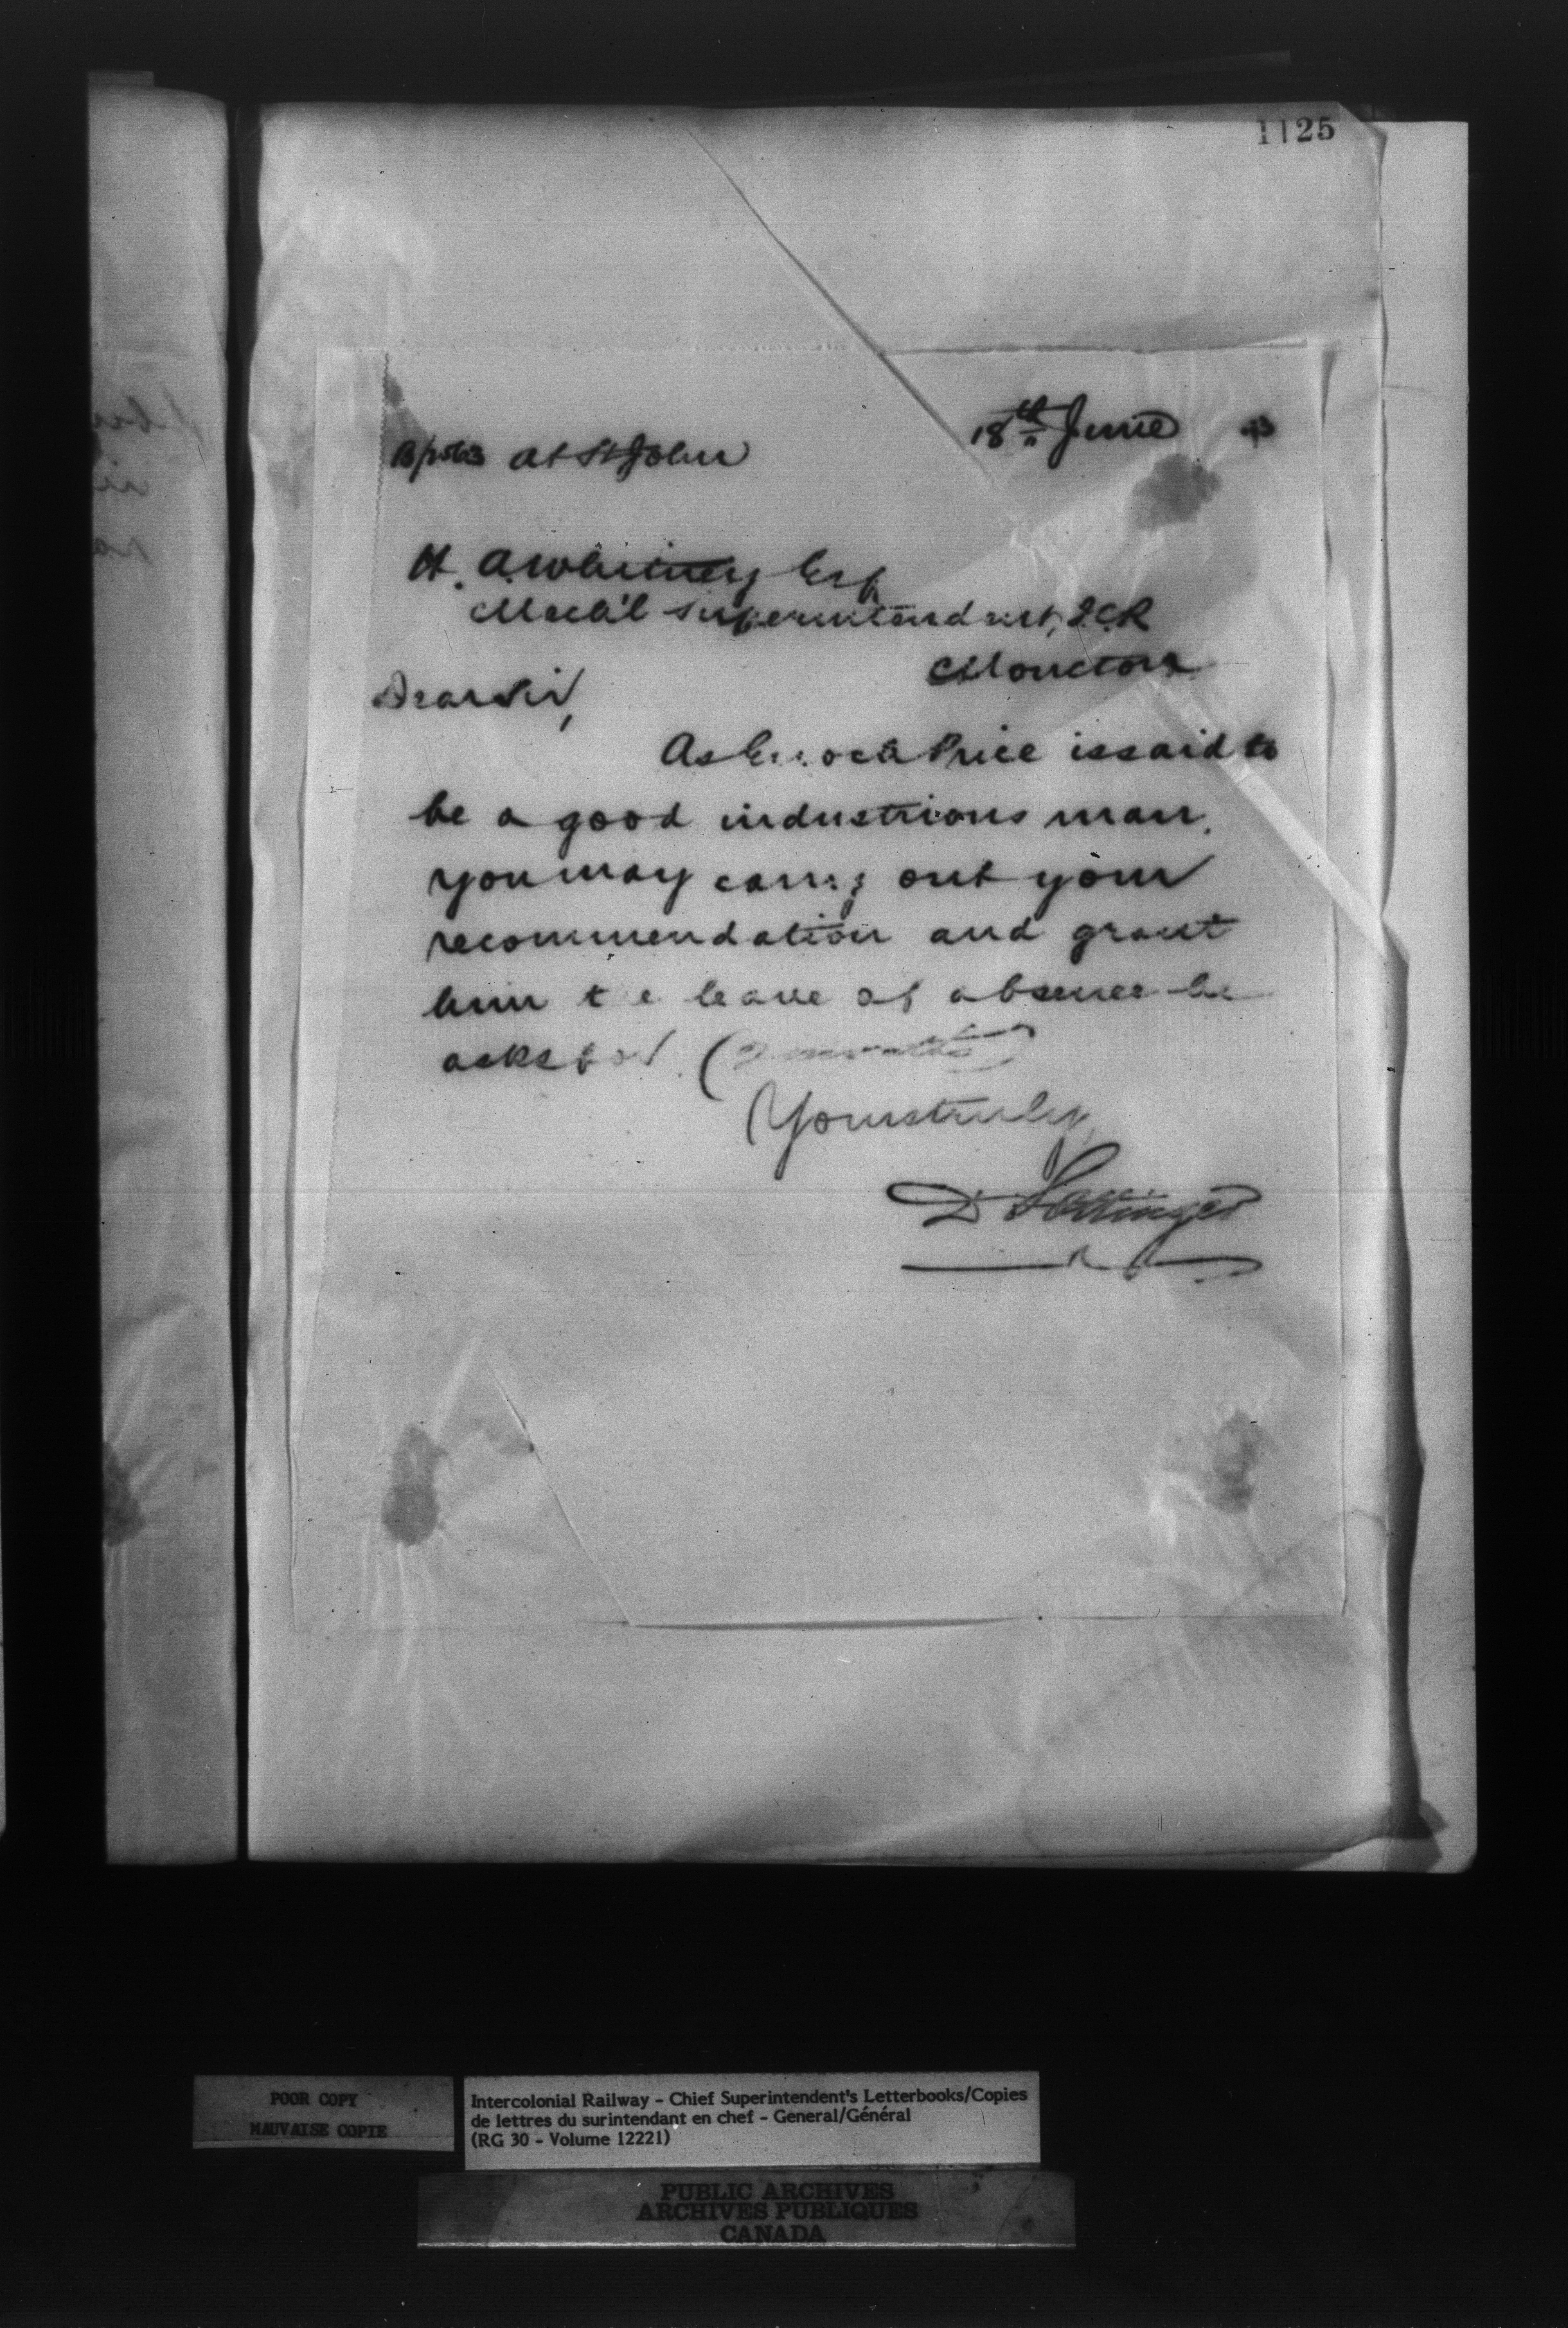 1125
18th June 83
B/2563 at St John
H. A. Whitney Esq
Mech'l Superintendent, I.C.R
Moncton
Dear Sir,
As Enoch Price is said to
be a good industrious man,
you may carry out your
recommendation and grant
him the leave of absence he
asks for. (2 months)
Yours truly,
D Pottinger
POOR COPY
MAUVAISE COPIE
Intercolonial Railway - Chief Superintendent's Letterbooks/Copies
de lettres du surintendant en chef - General/Général
(RG 30 - Volume 12221)
PUBLIC ARCHIVES
ARCHIVES PUBLIQUES
CANADA